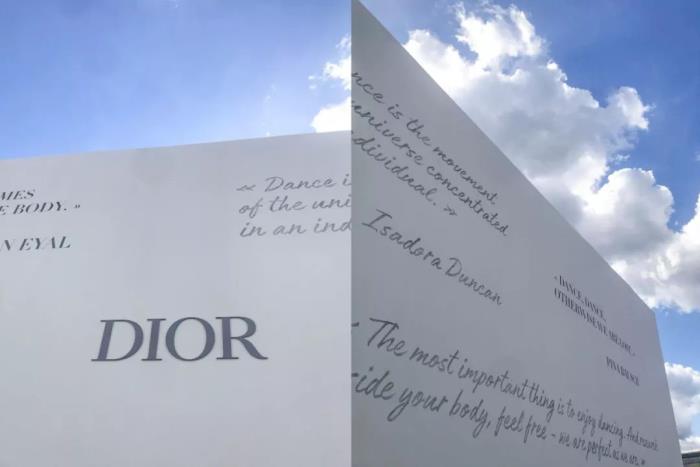 MES
E BODY. »
N EYAL
« Dance i
of the uni
in an ind
DIOR
nce is the movement
universe concentrated
dividual. »
Isadora Duncan
« DANCE, DANCE,
OTHERWISE WE ARE LOST. »
PINA BAUSCH
« The most important thing is to enjoy dancing. And
side your body, feel free - we are perfect as we are. »